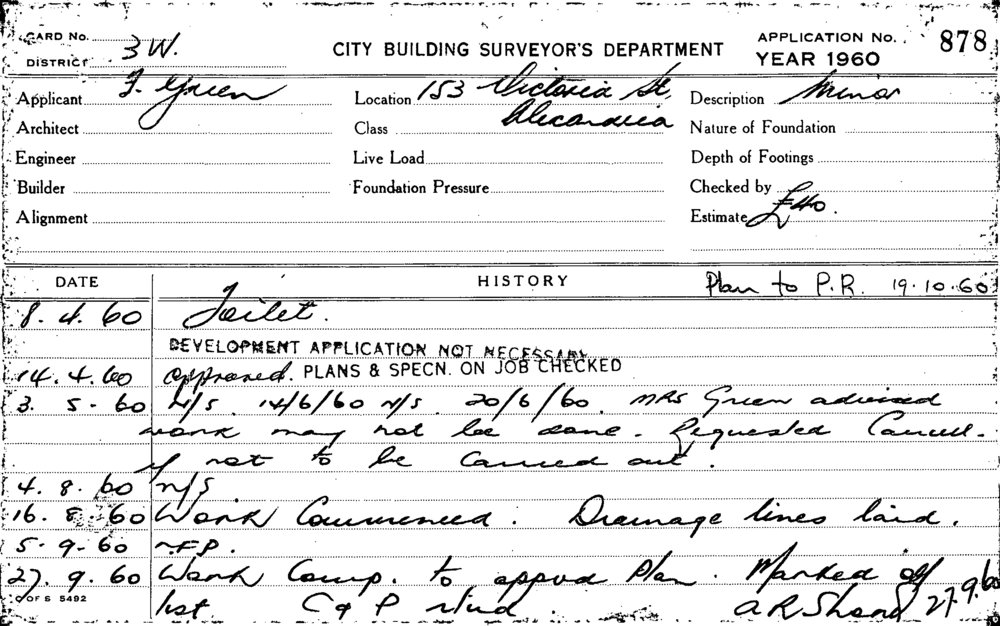 CARD No.
DISTRICT 3 W.
CITY BUILDING SURVEYOR'S DEPARTMENT
APPLICATION No. 878
YEAR 1960
Applicant F. Green
Location 153 Victoria St,
Alexandria
Description Minor
Architect
Class
Nature of Foundation
Engineer
Live Load
Depth of Footings
Builder
Foundation Pressure
Checked by
Alignment
Estimate £40.
DATE HISTORY Plan to P.R. 19.10.60
8. 4. 60 Toilet.
DEVELOPMENT APPLICATION NOT NECESSARY
14. 4. 60 approved. PLANS & SPECN. ON JOB CHECKED
3. 5. 60 N/S. 14/6/60 N/S. 20/6/60. MRS Green advised
work may not be done. Requested Cancell.
if not to be carried out.
4. 8. 60 N/S
16. 8. 60 Work Commenced. Drainage lines laid.
5. 9. 60 N.F.P.
27. 9. 60 Work Comp. to appvd Plan. Marked off
list. C & P 27.9.60
C OF S 5492